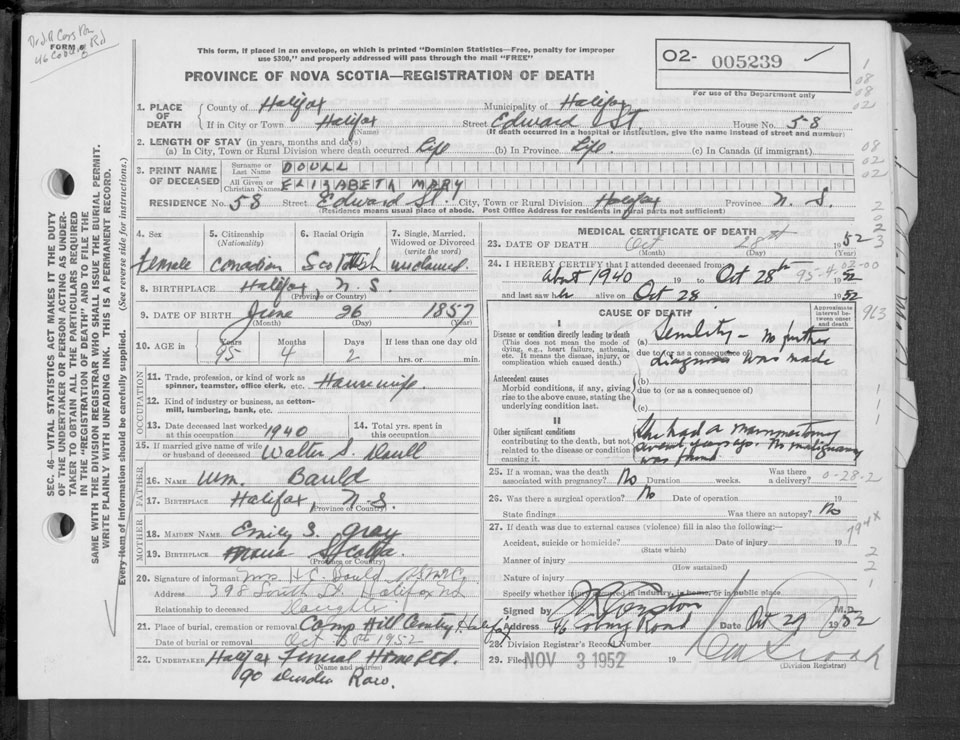 FORM 6
This form, if placed in an envelope, on which is printed "Dominion Statistics—Free, penalty for improper
use $300," and properly addressed will pass through the mail "FREE"
PROVINCE OF NOVA SCOTIA—REGISTRATION OF DEATH
02- 005239
For use of the Department only
1. PLACE OF DEATH County of Halifax Municipality of Halifax
If in City or Town Halifax (Name) Street Edward St House No. 58
(If death occurred in a hospital or institution, give the name instead of street and number)
2. LENGTH OF STAY (in years, months and days)
(a) In City, Town or Rural Division where death occurred Life (b) In Province Life. (c) In Canada (if immigrant)
3. PRINT NAME OF DECEASED Surname or Last Name DOULL
All Given or Christian Names ELIZABETH MARY
RESIDENCE No. 58 Street Edward St. City, Town or Rural Division Halifax Province N. S.
(Residence means usual place of abode. Post Office Address for residents in rural parts not sufficient)
4. Sex Female
5. Citizenship (Nationality) Canadian
6. Racial Origin Scottish
7. Single, Married, Widowed or Divorced (write the word) widowed.
8. BIRTHPLACE Halifax, N. S. (Province or Country)
9. DATE OF BIRTH June 26 1857 (Month) (Day) (Year)
10. AGE in Years 95 Months 4 Days 2 If less than one day old hrs. or min.
OCCUPATION
11. Trade, profession, or kind of work as spinner, teamster, office clerk, etc. Housewife.
12. Kind of industry or business, as cotton-mill, lumbering, bank, etc.
13. Date deceased last worked at this occupation 1940
14. Total yrs. spent in this occupation
15. If married give name of wife or husband of deceased Walter S. Doull
FATHER
16. NAME Wm. Bauld
17. BIRTHPLACE Halifax, N.S. (Province or Country)
MOTHER
18. MAIDEN NAME Emily S. Gray
19. BIRTHPLACE Nova Scotia. (Province or Country)
20. Signature of informant Mrs H C Bauld
Address 398 South St. Halifax NS
Relationship to deceased Daughter
21. Place of burial, cremation or removal Camp Hill Cemetry Halifax
Date of burial or removal Oct 1952
22. UNDERTAKER Halifax Funeral Home Ltd.
(Name and address)
90 Row.
MEDICAL CERTIFICATE OF DEATH
23. DATE OF DEATH Oct 28th 1952
(Month) (Day) (Year)
24. I HEREBY CERTIFY that I attended deceased from:
About 1940 19 to Oct 28th 1952
and last saw her alive on Oct 28 1952
CAUSE OF DEATH
Approximate interval between onset and death
I
Disease or condition directly leading to death
(This does not mean the mode of dying, e.g., heart failure, asthenia, etc. It means the disease, injury, or complication which caused death.)
(a) Senility - no further
due to (or as a consequence of)
diagnosis was made
Antecedent causes
Morbid conditions, if any, giving rise to the above cause, stating the underlying condition last.
(b)
due to (or as a consequence of)
(c)
II
Other significant conditions
contributing to the death, but not related to the disease or condition causing it.
She had a mammectomy
several years ago. No malignancy
was found
25. If a woman, was the death associated with pregnancy? No Duration weeks. Was there a delivery?
26. Was there a surgical operation? No Date of operation 19
State findings Was there an autopsy? No
27. If death was due to external causes (violence) fill in also the following:—
Accident, suicide or homicide? Date of injury 19
(State which)
Manner of injury
(How sustained)
Nature of injury
Specify whether injury occurred in industry, in home, or in public place.
Signed by M.D.
Address 46 Coburg Road Date Oct 29 1952
28. Division Registrar's Record Number
29. Filed NOV 3 1952 19
(Division Registrar)
SEC. 46—VITAL STATISTICS ACT MAKES IT THE DUTY
OF THE UNDERTAKER OR PERSON ACTING AS UNDER-
TAKER TO OBTAIN ALL THE PARTICULARS REQUIRED
IN THE "REGISTRATION OF DEATH" AND TO FILE THE
SAME WITH THE DIVISION REGISTRAR WHO SHALL ISSUE THE BURIAL PERMIT.
WRITE PLAINLY WITH UNFADING INK. THIS IS A PERMANENT RECORD.
Every item of information should be carefully supplied. (See reverse side for instructions.)